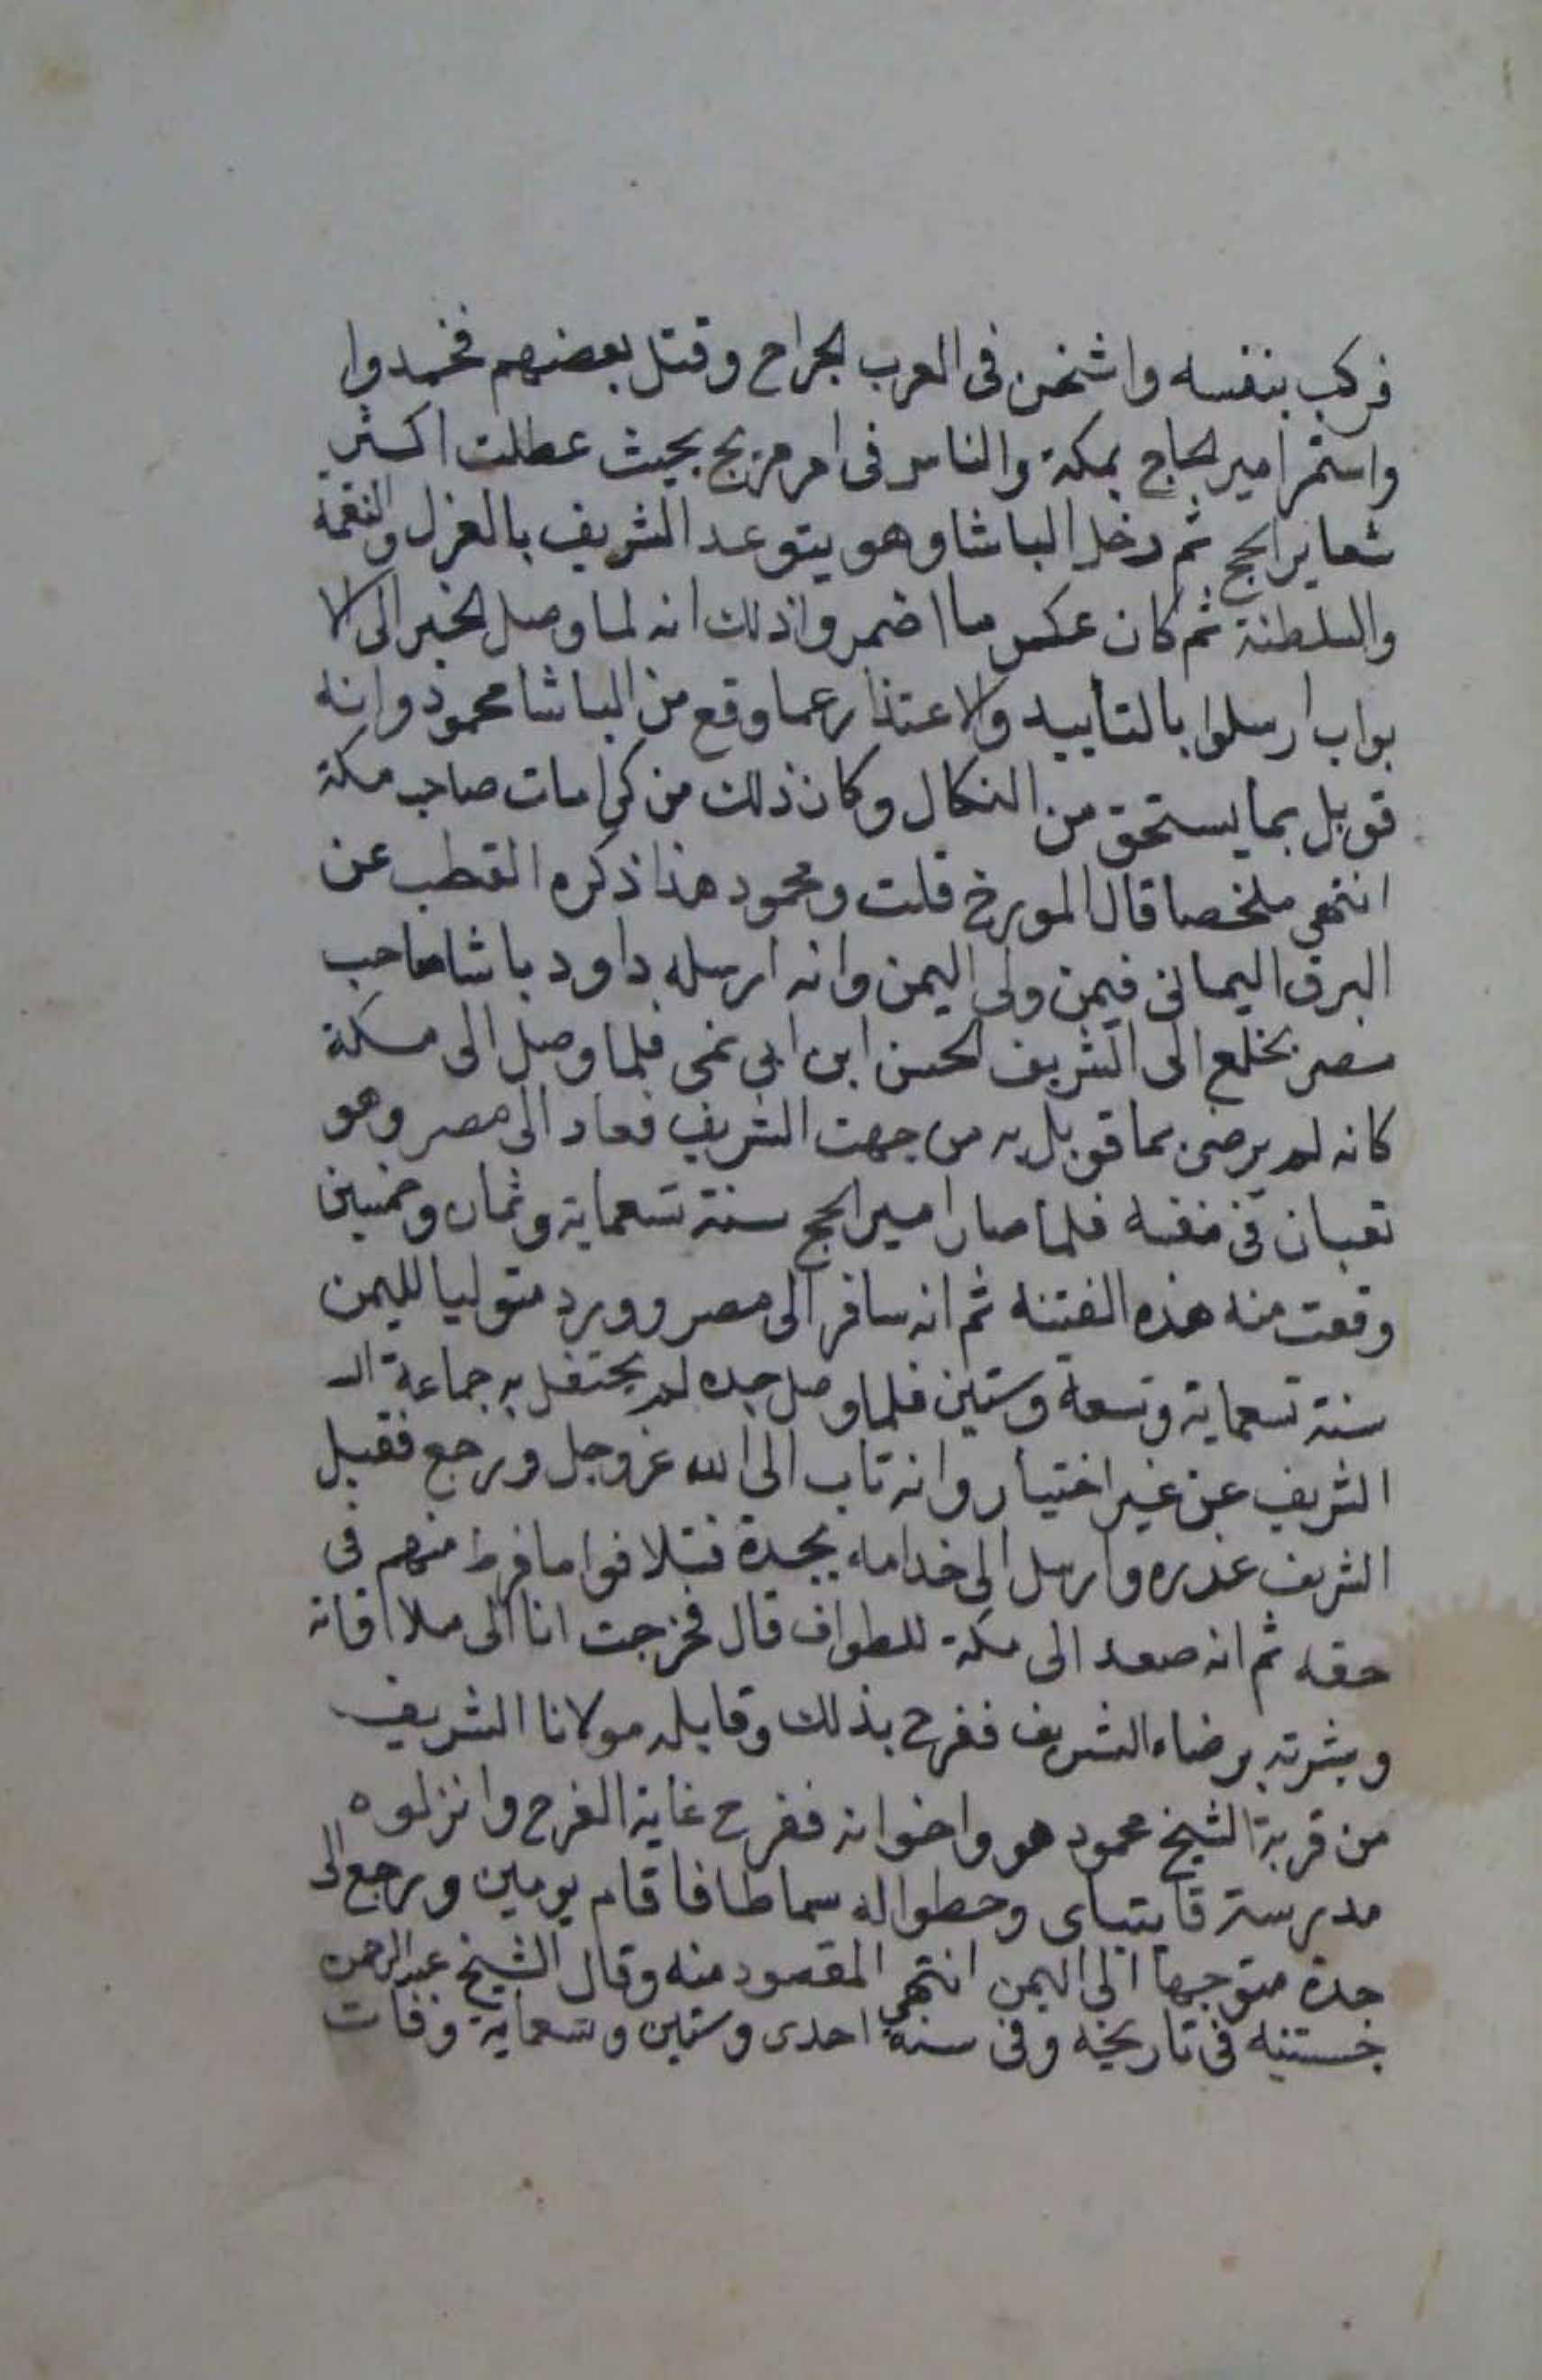 فركب بنفسه واشخن فى العرب الجراح وقتل بعضهم فخمدوا
واستمر امير الحاج بمكة والناس فى امر مزيج بحيث عطلت اكثر
شعاير الحج ثم دخل الباشا وهو يتوعد الشريف بالعزل والنقمه
والسلطنة ثم كان عكس ما اضمر واذلك انه لما وصل الخبر الى الا
بواب ارسلوا بالتأييد والاعتذار عما وقع من الباشا محمود وانه
قوبل بما يستحق من النكال وكان ذلك من كرامات صاحب مكة
انتهى ملخصا قال المورخ قلت ومحمود هذا ذكره القطب عن
البرق اليمانى فيمن ولى اليمن وانه ارسله داود باشا صاحب
مصر بخلع الى الشريف الحسن ابن ابى نمى فلما وصل الى مكة
كانه لم يرضى بما قوبل به من جهت الشريف فعاد الى مصر وهو
تعبان فى نفسه فلما صار امير الحج سنة تسعماية وثمان وخمسين
وقعت منه هذه الفتنه ثم انه سافر الى مصر وورد متوليا لليمن
سنة تسعماية وتسعة وستين فلما وصل جده لم يحتفل به جماعة الـ
الشريف عن غير اختيار وانه تاب الى الله عز وجل ورجع فقبل
الشريف عذره وارسل الى خدامه بجدة فتلافوا ما فرط منهم فى
حقه ثم انه صعد الى مكة للطواف قال فخرجت انا الى ملااقاته
وبشرته برضاء الشريف ففرح بذلك وقابله مولانا الشريف
من قربة الشيخ محمود هو واخوانه ففرح غاية الفرح وانزلوه
مدرسة قايتباى وحطوا له سماطا فاقام يومين ورجع الى
جدة متوجها الى اليمن انتهى المقصود منه وقال الشيخ عبد الرحمن
جستنيه فى تاريخه وفى سنة احدى وستين وتسعماية وفات